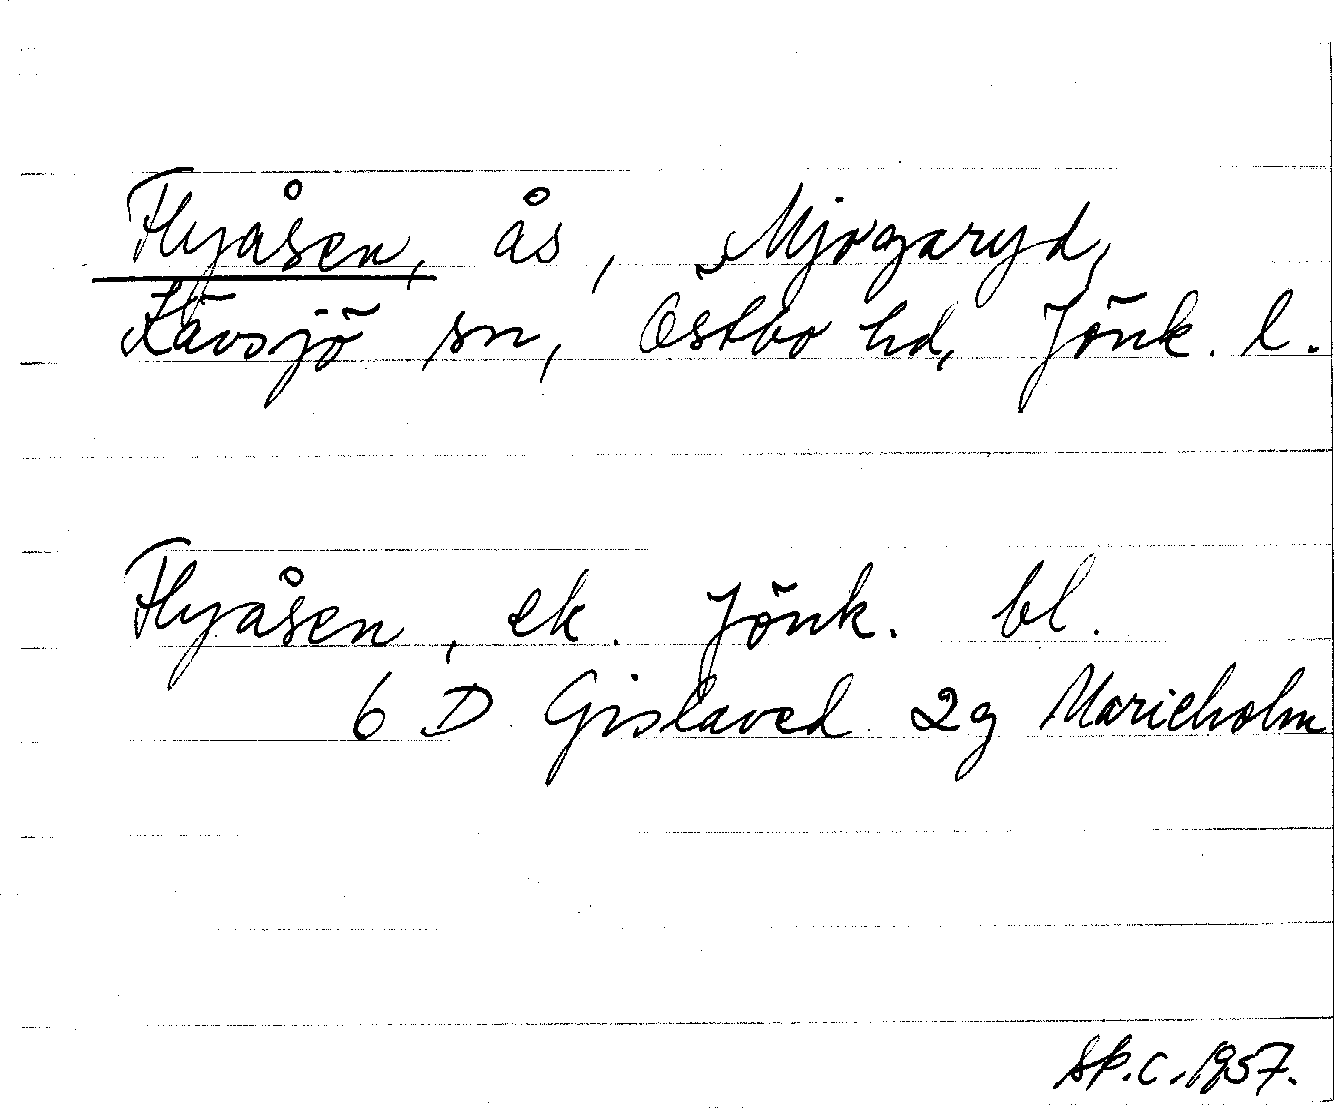 Flyåsen, ås, Mjogaryd,
Kävsjö sn, Östbo hd, Jönk. l.
Flyåsen, ek. Jönk. bl.
6 D Gislaved 2g Marieholm
Sp.c. 1957.